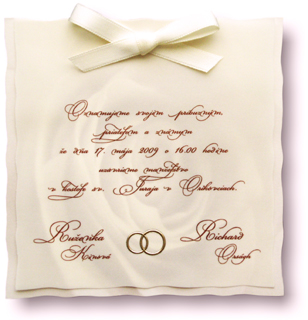 Oznamujeme svojim príbuzným,
priateľom a známym
že dňa 17. mája 2009 o 16.00 hodine
uzavrieme manželstvo
v kostole sv. Juraja v
Ruženka Richard